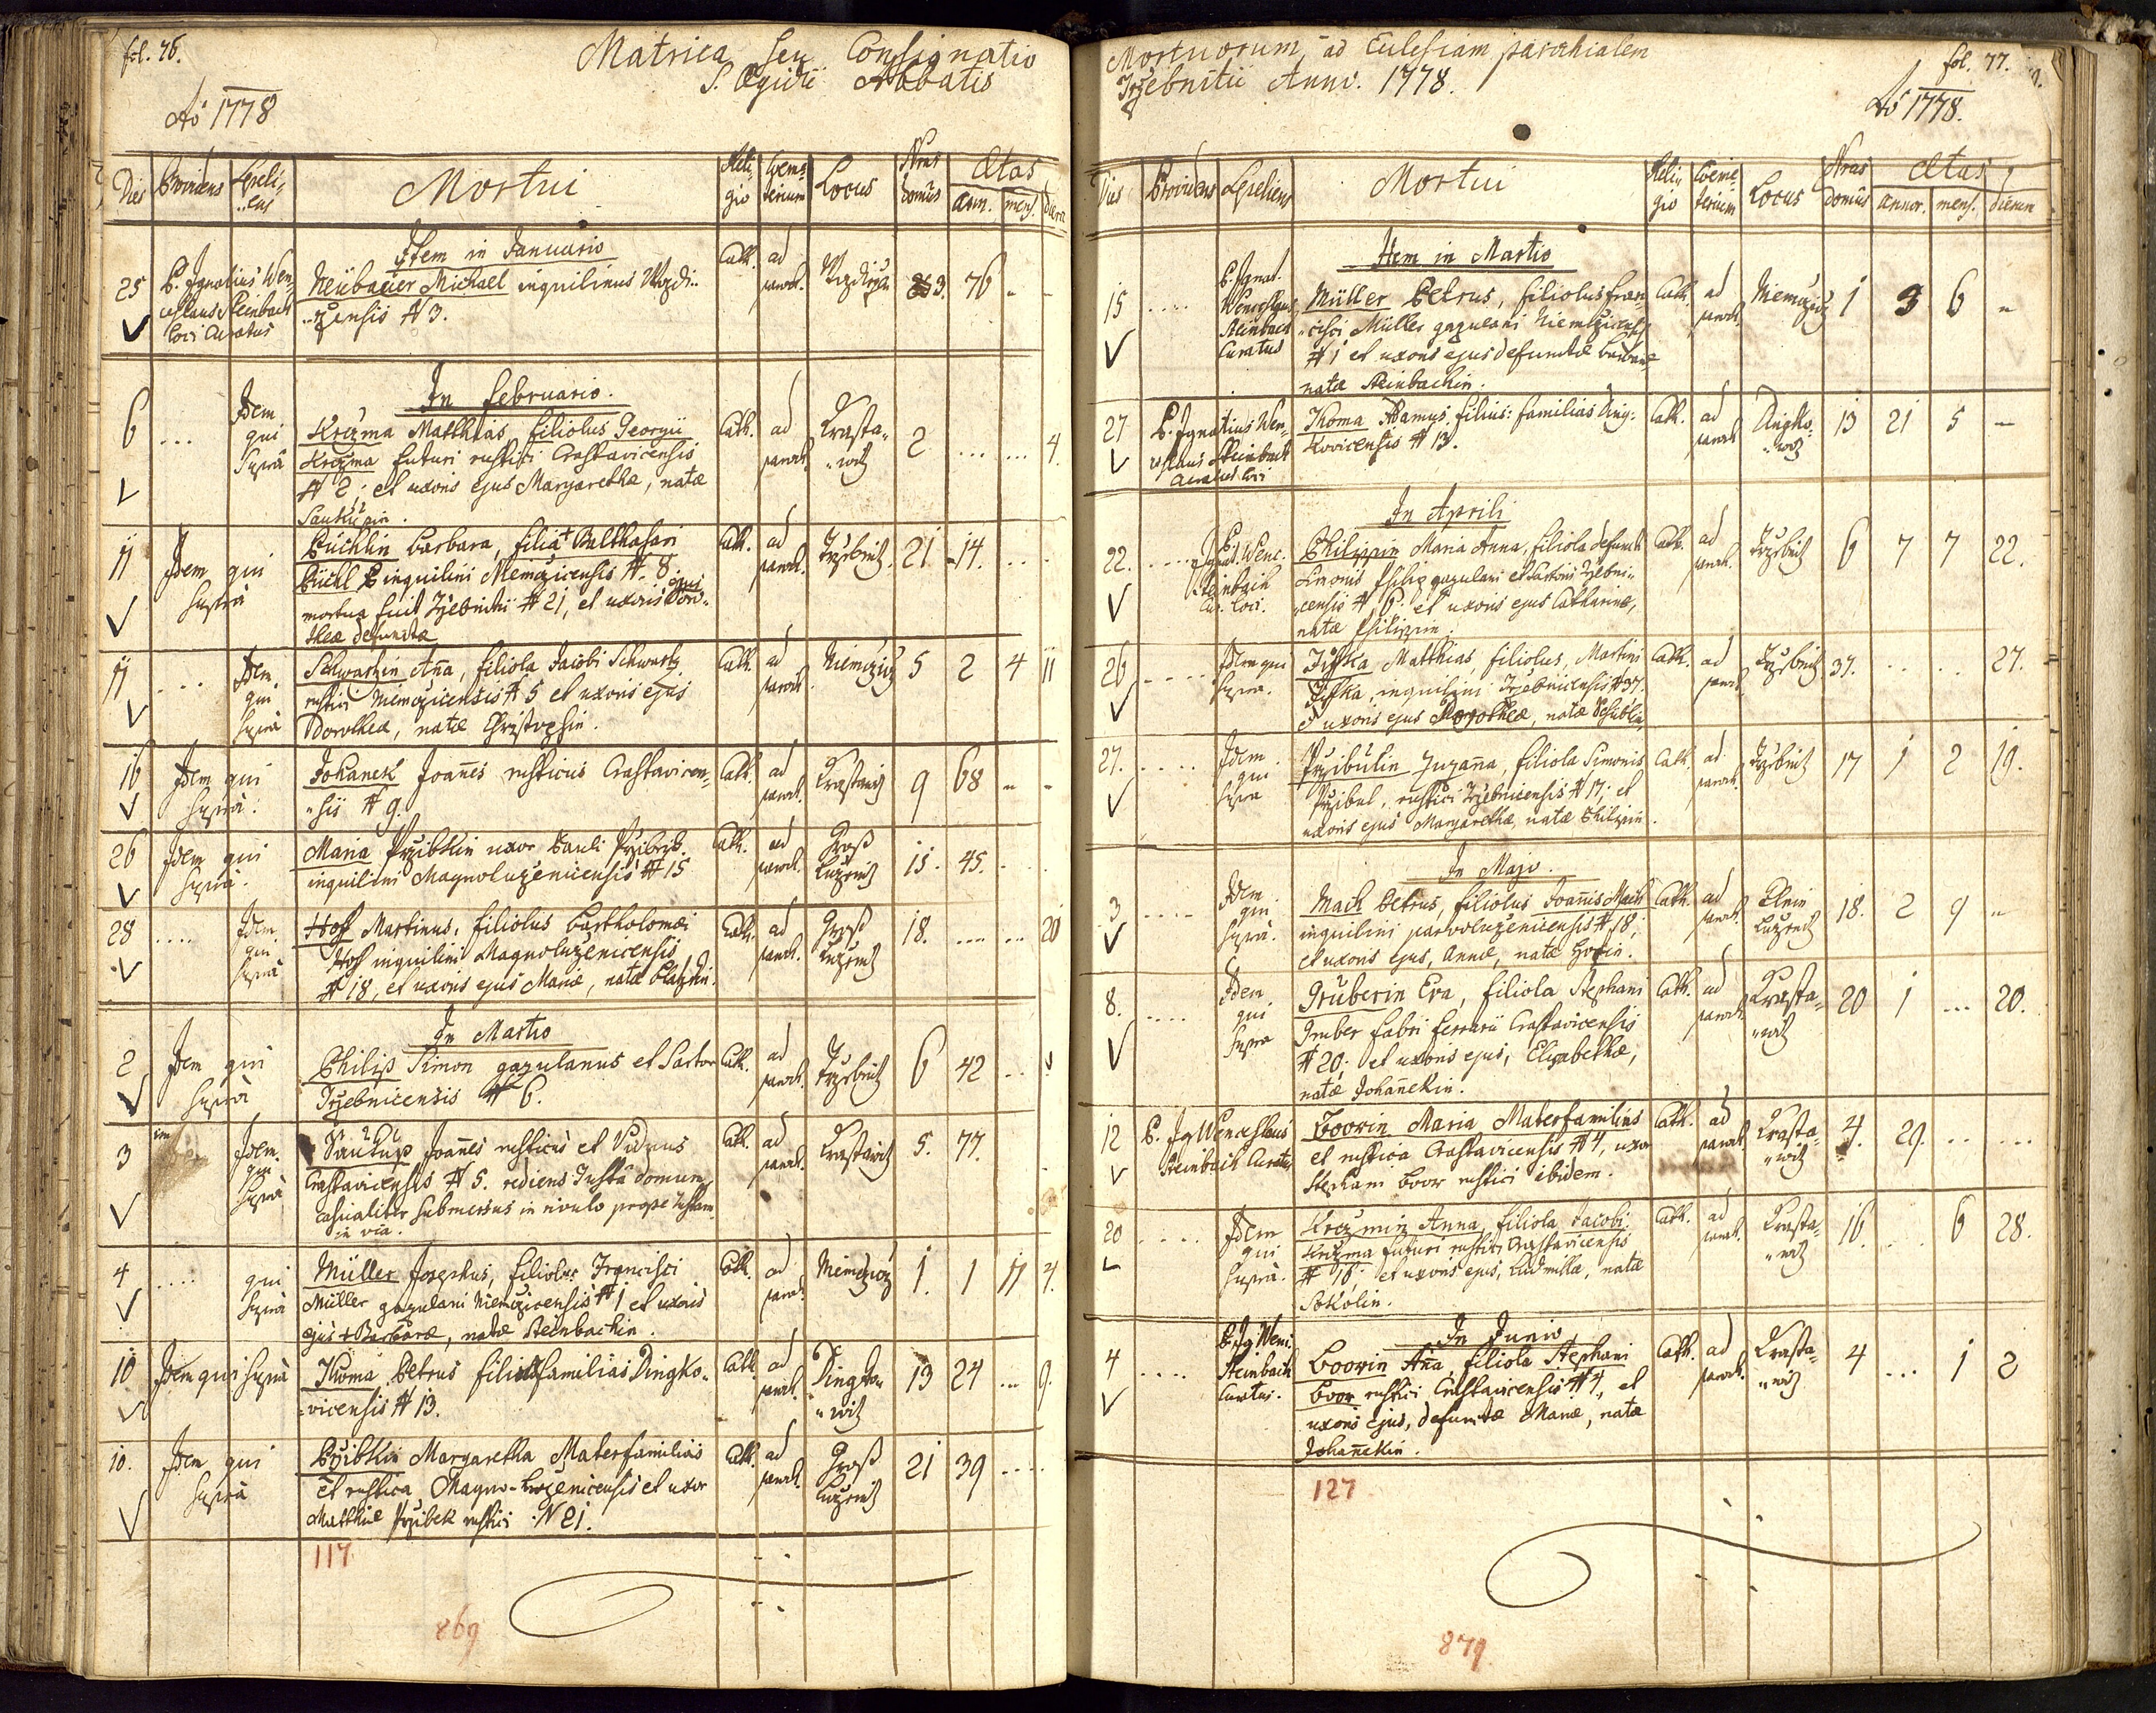 fol. 76.
Matrica seu Consignatio
S. Ægidii Abbatis
Aō 1778
Dies
Providens
Sepeli,,
..ens
Mortui
Reli,,
gio
Coeme
terium
Locus
Nrus
domus
Ætas
ann.
mens.
dierum
Item in Januario
25 P. Ignatius Wen,,
ceslaus Steinbach
loci Curatus
Neübaüer Michael inquilinus
..zensis # 3.
Cath. ad
paroch.
3. 76 - -
In Februario.
6 ... Idem
qui
Suprà
Krczma Matthias filiolus Georgii
Krczma futuri rustici Crastavicensis
# 2; et uxoris ejus Margarethæ, natæ
Cath. ad
paroch. Krasta,,
,,witz 2 ... ... 4.
11 Idem qui
Suprà
Püchlin Barbara, filia Balthasari
Püchl inquilini Niemczicensis # 8.
mortua fuit Trzebnitii # 21, et uxoris ejus Doro,,
theæ defunctæ
Cath. ad
paroch. Trzebnitz. 21 14. ... ..
11 ... Idem
qui
Suprà
Schwartzin Aña, filiola Jacobi Schwartz
rustici Niemczicensis # 5 et uxoris ejus
Dorotheæ, natæ Christophin.
Cath. ad
paroch. Niemczicz 5 2 4 11
16 Idem qui
Suprà.
Johanek Joañes rusticus Crastavicen,,
,,sis # 9.
Cath. ad
paroch. Krastawitz 9 68 - -
26 Idem qui
Suprà.
Maria Przibklin uxor Pauli
inquilini Magnoluzenicensis # 15
Cath. ad
paroch. Groß
Luzenitz 15. 45. ..
28 .... Idem
qui
Suprà
Hoß Martinus, filiolus Bartholomæi
Hoß inquilini Magnoluzenicensis
# 18, et uxoris ejus Mariæ, natæ
Cath. ad
paroch. Groß
Luzenitz 18. .... ... 20
In Martio
2 Idem qui
Suprà
Philip Simon gazulanus et Sartor
Trzebnicensis # 6.
Cath. ad
paroch. Trzebnitz 6 42 ..
3 Idem
qui
Suprà
Joañes rusticus et Viduus
Crastavicensis # 5. rediens Justà domum
casualiter submersus in rivulo prope
in via.
Cath. ad
paroch. Krastawitz 5. 77.
4 .... qui
Suprà
Müller Josephus, filiolus Francisci
Müller gazulani Niemczicensis # 1 et uxoris
ejus + Barbaræ, natæ Steinbachin.
Cath. ad
paroch. Niemczicz 1. 1 11 4.
10 Idem qui Suprà
Thoma Petrus filiusfamilias Dingko,,
,,vicensis # 13.
Cath. ad
paroch. Dingko,,
,,witz 13 24 ... 9.
10. Idem qui
Suprà
Przibklin Margaretha Materfamilias
et rustica Magno-Luzenicensis et uxor
Matthiæ Przibek rustici N 21.
Cath. ad
paroch. Groß
Luzenitz 21 39 ....
117
869
Mortuorum, ad Ecclesiam parochialem
Trzebnitii Anno. 1778.
fol. 77.
Aō 1778.
Dies
Providens
Sepeliens
Mortui
Reli,,
gio
Coeme
terium
Locus
Nrus
domus
Ætas
annor.
mens.
dierum
Item in Martio
15 .... P. Ignat.
Wenceslaus
Steinbach
Curatus
Müller Petrus, filiolus Fran,,
,,cisci Müller gazulani Niemczicensis
# 1 et uxoris ejus defunctæ Barbaræ
natæ Steinbachin.
Cath. ad
paroch. Niemczicz 1 3 6 "
27 P. Ignatius Wen,,
ceslaus Steinbach
Curatus loci
Thoma Adamus. filius: familias Ding,,
kovicensis # 13.
Cath. ad
paroch. Dingko,,
,,witz 13 21 5 -
In Aprili
22. .... P.
Ignat. Wenc.
Steinbach
Cur. loci.
Philippin Maria Anna, filiola defuncti
Simonis Philip gazulani et Sartoris Trzebni,,
,,censis # 6. et uxoris ejus Catharinæ,
natæ Philippin.
Cath. ad
paroch. Trzebnitz 6 7 7 22.
26 .... Idem qui
supra.
Jiszka, Matthias, filiolus, Martini
Jiszka, inquilini Trzebnicensis # 37.
et uxoris ejus Dorotheæ, natæ
Cath. ad
paroch. Trzebnitz 37. .. . 27.
27. .... Idem
qui
supra
Przibülin Juzaña, filiola Simonis
Przibul, rustici Trzebnicensis # 17. et
uxoris ejus Margarethæ, natæ Philippin.
Cath. ad
paroch. Trzebnitz 17 1 2 19.
In Majo.
3 .... Idem
qui
suprà.
Mach Petrus, filiolus Joannis Mach
inquilini parvoluzenicensis # 18;
et uxoris ejus, Annæ, natæ
Cath. ad
paroch. Klein
Luzenitz 18. 2 9 "
8. .... Idem
qui
supra
Gruberin Eva, filiola Stephani
Gruber fabri ferrarii Crastavicensis
# 20; et uxoris ejus, Elisabethæ,
natæ Johañekin.
Cath. ad
paroch. Krasta,,
,,witz 20 1 ... 20.
12 P. Ig Wenceslaus
Steinbach Curatus
Boorin Maria Materfamilias
et rustica Crastavicensis # 4, uxor
Stephani Boor rustici ibidem.
Cath. ad
paroch. Krasta,,
,,witz 4. 29. .. ...
20 .... Idem
qui
suprà.
Krczmin Anna, filiola Jacobi
Krczma futuri rustici Crastavicensis
# 16; et uxoris ejus, Ludmillæ, natæ
Sokolin.
Cath. ad
paroch. Krasta,,
,,witz 16. . 6 28.
In Junio
4 .... P. Ig. Wenc.
Steinbach
Curatus.
Boorin Aña filiola Stephani
Boor rustici Crastavicensis # 4, et
uxoris ejus, defunctæ Mariæ, natæ
Johañekin.
Cath. ad
paroch. Krasta,,
,,witz 4 ... 1 2
127
879